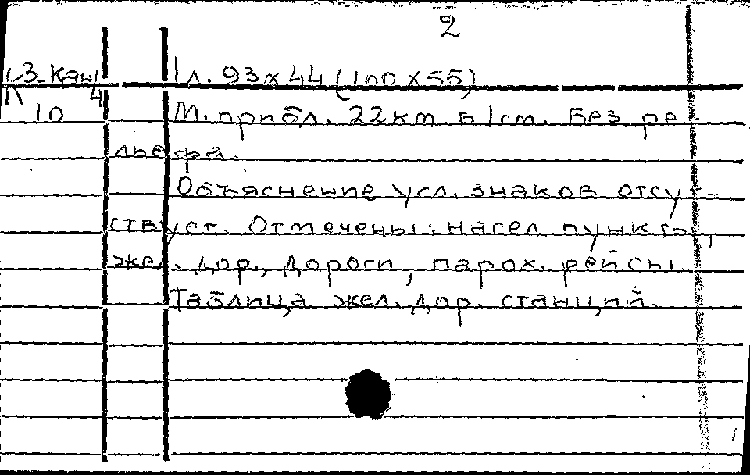 2
З-Кан 1 л. 93 х 44 (100 х 55)
К 4
10 М. прибл. 22 км в 1 см. Без ре-
льефа.
Объяснение усл. знаков отсут-
ствует. Отмечены: насел. пункты,
жел. дор., дороги, парох. рейсы.
Таблица жел. дор. станций.